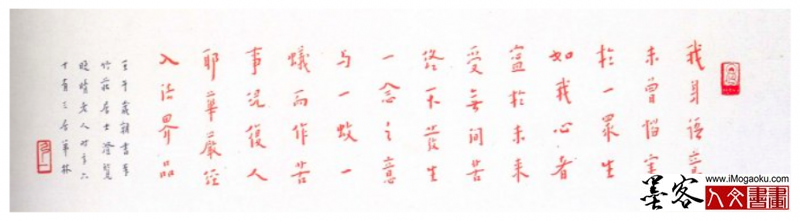 我身語意
未曾惱害
於一眾生
如我心者
寧於未來
受無間苦
終不發生
一念之意
与一蚊一
蟻而作苦
事況復人
耶華嚴經
入法界品
壬午歲朝書奉
居士澄覽
晚晴老人時年六
十有三居
www.iMogaoku.com
墨客
人文書畫